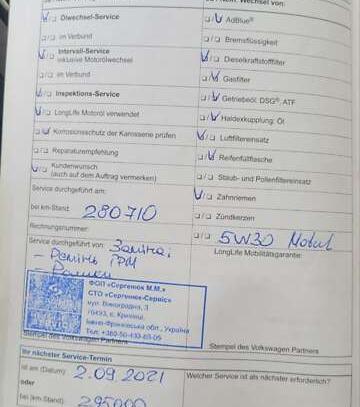 Ölwechsel-Service
AdBlue®
im Verbund
Bremsflüssigkeit
Intervall-Service
inklusive Motorölwechsel
Dieselkraftstofffilter
im Verbund
Gasfilter
Inspektions-Service
Getriebeöl: DSG®, ATF
LongLife Motoröl verwendet
Haldexkupplung: Öl
Korrosionsschutz der Karosserie prüfen
Luftfiltereinsatz
Reparaturempfehlung
Reifenfüllflasche
Kundenwunsch
(auch auf dem Auftrag vermerken)
Staub- und Pollenfiltereinsatz
Service durchgeführt am:
Zahnriemen
bei km-Stand: 280710
Zündkerzen
Rechnungsnummer:
5W30 Motul
Service durchgeführt von: Заміна:
LongLife Mobilitätsgarantie:
- Ремінь ГРМ
- Ролики
ФОП «Сергенюк М.М.»
СТО «Сергенюк-Сервіс»
вул. Виноградна, 3
с. Криниці,
Івано-Франківська обл., Україна
Stempel des Volkswagen Partners
Stempel des Volkswagen Partners
Ihr nächster Service-Termin
ist am (Datum): 2.09.2021
Welcher Service ist als nächster erforderlich?
oder
bei (km-Stand): 295000